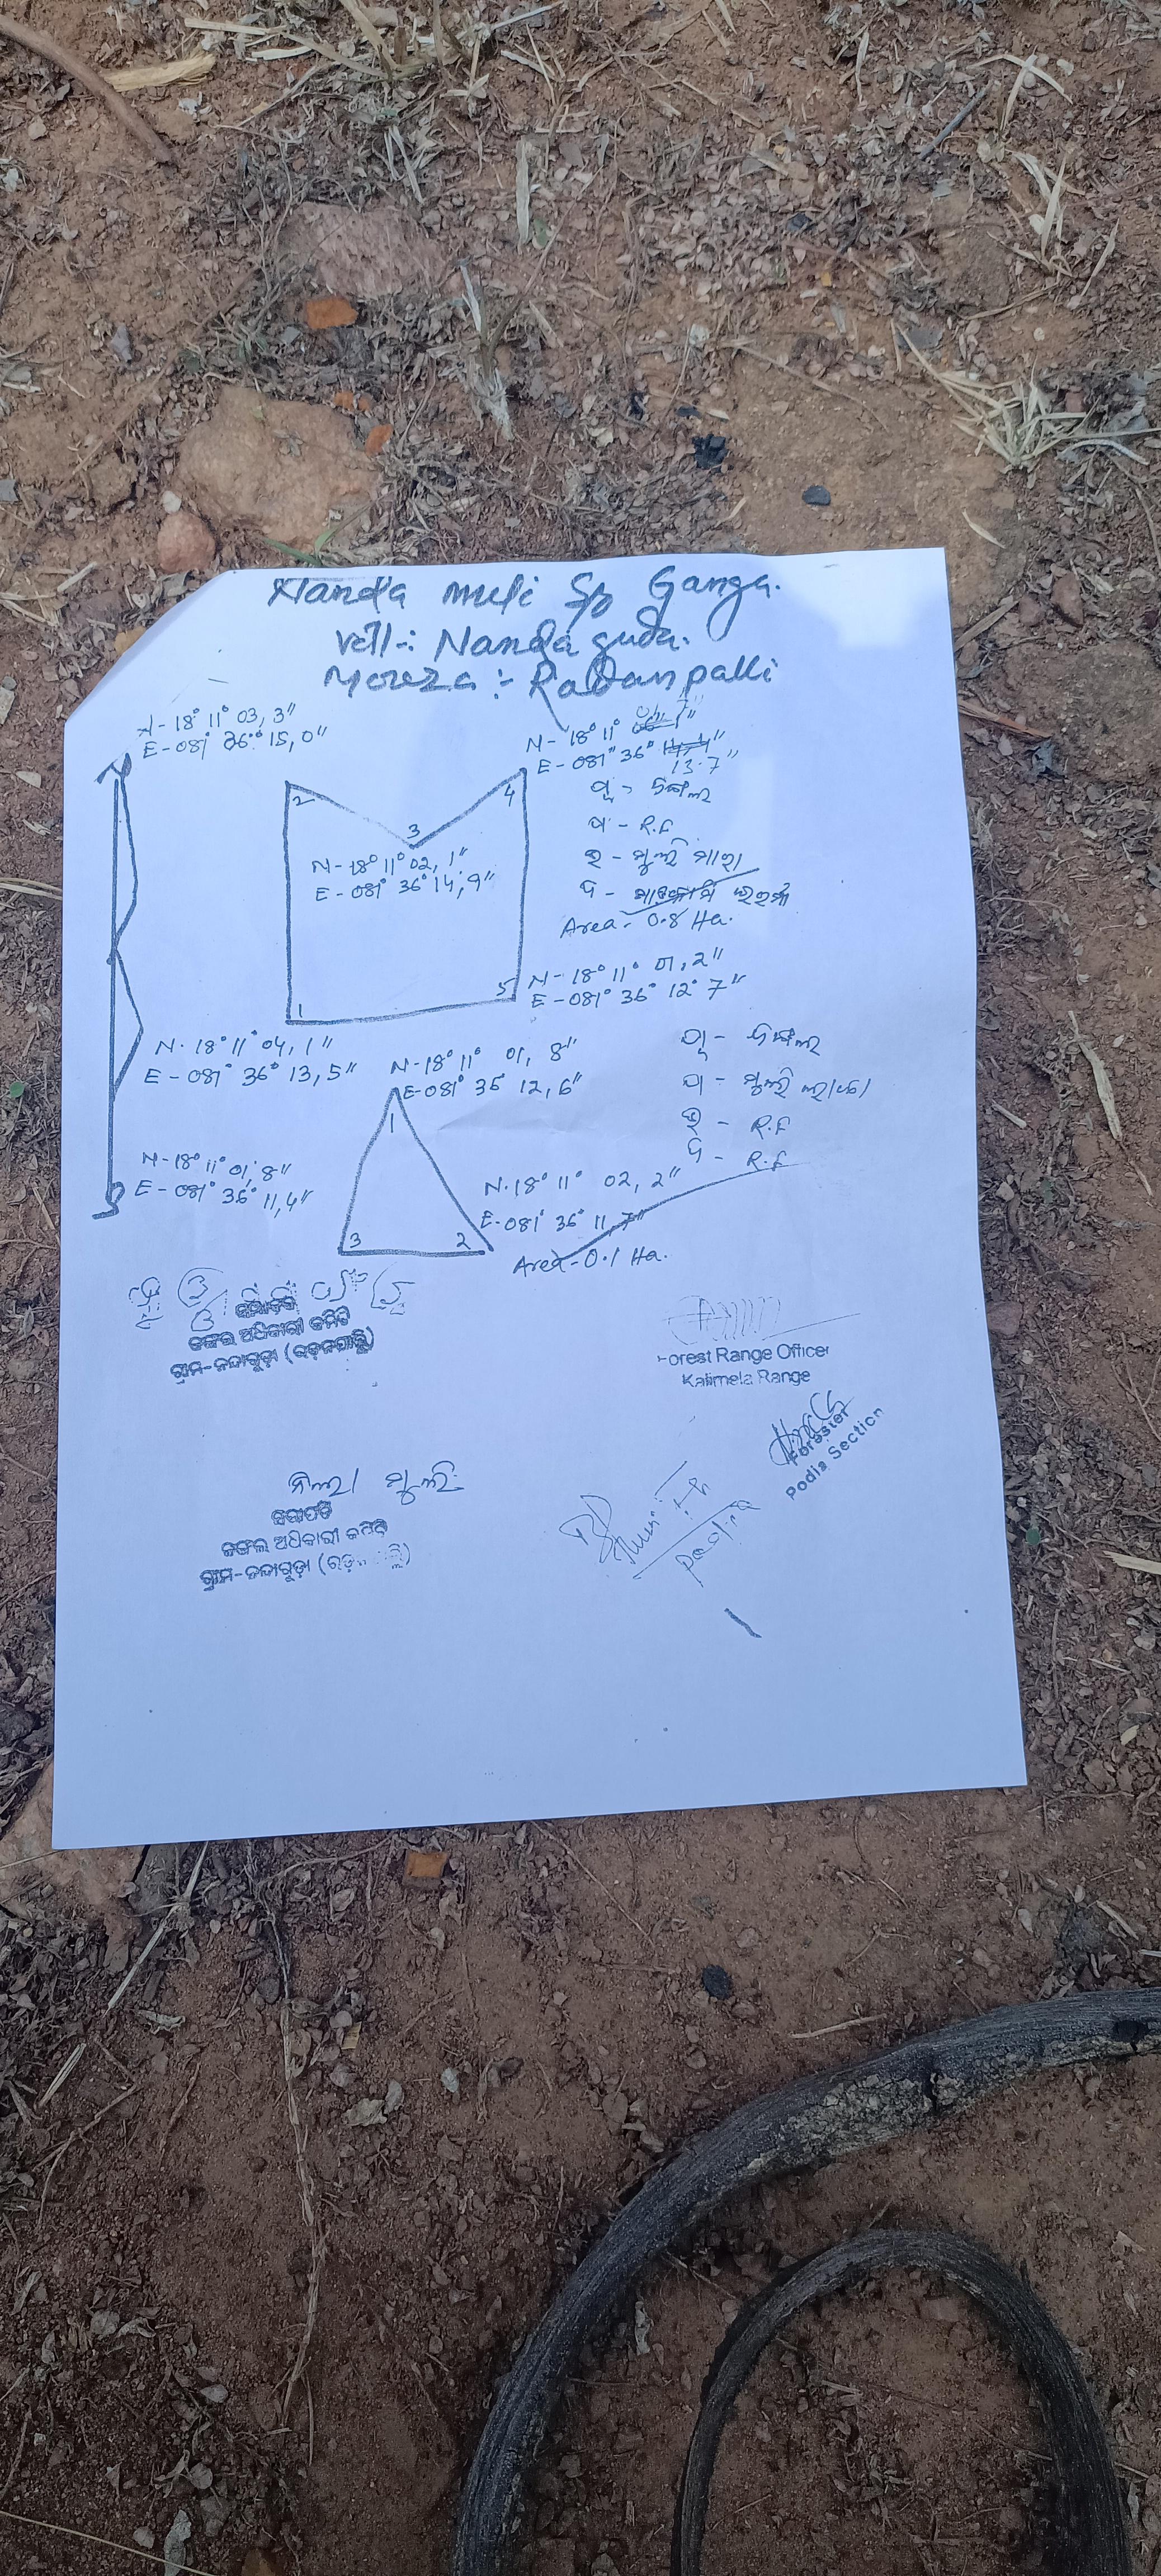 Nanda muli S/o Ganga.
vill-: Nandaguda.
Mouza :- Rabanpalli
N- 18° 11° 03, 3"
E- 081° 36° 15, 0"
N- 18° 11° 01, 7"
E- 081° 36° 13.7"
2
4
3
ପୂ - ଜଙ୍ଗଲ
ପ - R.F
ଉ - ମୁଲି
ଦ -
N- 18° 11° 02, 1"
E- 081° 36° 14, 9"
Area- 0.8 Ha.
N- 18° 11° 01, 2"
E- 081° 36° 12° 7"
1
5
N. 18° 11° 04, 1"
E- 081° 36° 13, 5"
N- 18° 11° 01, 8"
E- 081° 36° 12, 6"
ପୂ - ଜଙ୍ଗଲ
ପ - ମୁଲି
ଉ - R.F
ଦ - R.F
1
N- 18° 11° 01, 8"
E- 081° 36° 11, 4"
N. 18° 11° 02, 2"
E- 081° 36° 11, 7"
3
2
Area- 0.1 Ha.
ଜଙ୍ଗଲ ଅଧିକାରୀ କମିଟି
ଗ୍ରାମ-ନନ୍ଦାଗୁଡ଼ା (ରଡ଼ନପାଲ୍ଲି)
Forest Range Officer
Kalimela Range
Forester
Podia Section
ମୁଲି
ସଭାପତି
ଜଙ୍ଗଲ ଅଧିକାରୀ କମିଟି
ଗ୍ରାମ-ନନ୍ଦାଗୁଡ଼ା
podia